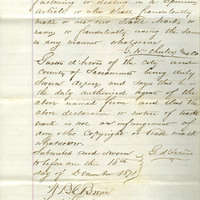 facturing or dealing in the spurious
article, or who shall fraudulently
make or use our trade mark or
name, or fraudulently using the same
in any manner whatsoever.
G. W. Chesley & Co
of the city and
County of Sacramento being duly
sworn deposes and says that he is
the duly authorized agent of the
above named firm and that the
above declaration or notice of trade
mark is not an infringement of
any other Copyright or trade mark
whatsoever.
Subscribed and sworn
to before me this 18th
day of December 1871